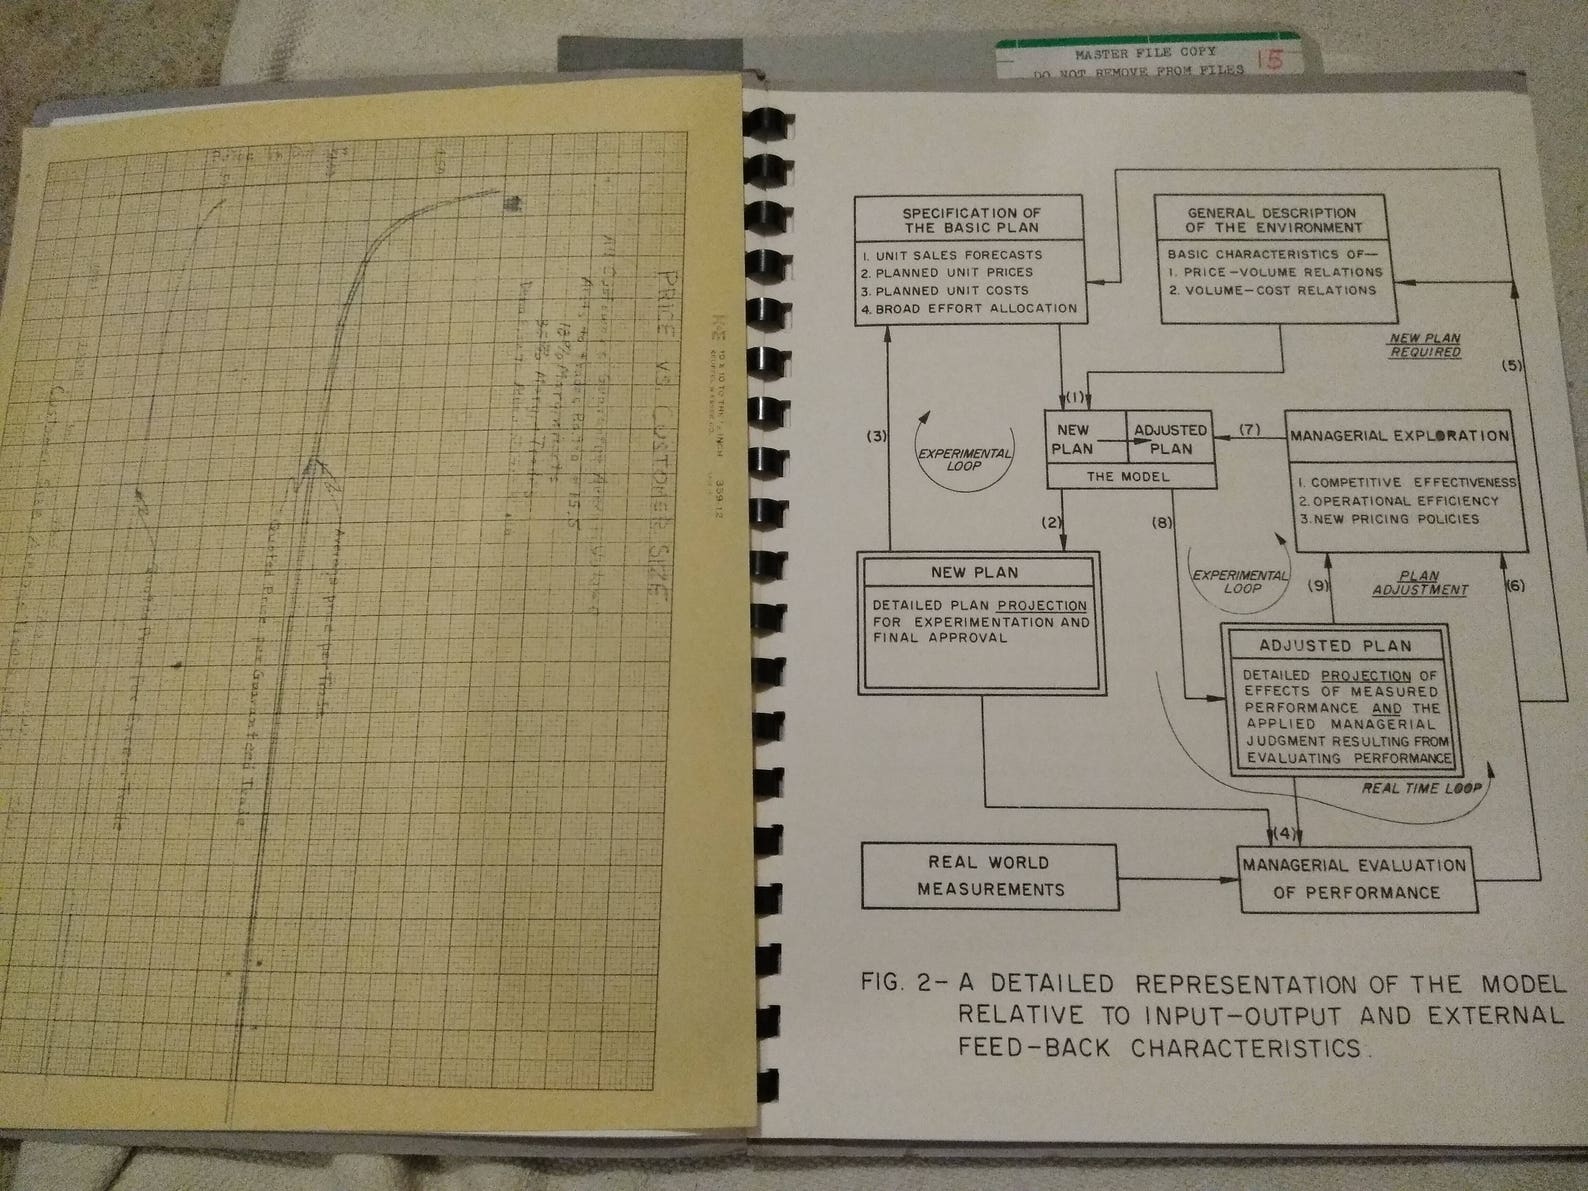 MASTER FILE COPY
DO NOT REMOVE FROM FILES
15
PRICE VS. CUSTOMER SIZE
10 X 10 TO THE ½ INCH 359-12
Average price per Trade
Quoted Price per Guaranteed Trade
SPECIFICATION OF
THE BASIC PLAN
1. UNIT SALES FORECASTS
2. PLANNED UNIT PRICES
3. PLANNED UNIT COSTS
4. BROAD EFFORT ALLOCATION
GENERAL DESCRIPTION
OF THE ENVIRONMENT
BASIC CHARACTERISTICS OF—
1. PRICE-VOLUME RELATIONS
2. VOLUME-COST RELATIONS
NEW PLAN
REQUIRED
(5)
(1)
(3)
EXPERIMENTAL
LOOP
NEW
PLAN
ADJUSTED
PLAN
THE MODEL
(7)
MANAGERIAL EXPLORATION
1. COMPETITIVE EFFECTIVENESS
2. OPERATIONAL EFFICIENCY
3. NEW PRICING POLICIES
(2)
(8)
EXPERIMENTAL
LOOP
(9)
PLAN
ADJUSTMENT
(6)
NEW PLAN
DETAILED PLAN PROJECTION
FOR EXPERIMENTATION AND
FINAL APPROVAL
ADJUSTED PLAN
DETAILED PROJECTION OF
EFFECTS OF MEASURED
PERFORMANCE AND THE
APPLIED MANAGERIAL
JUDGMENT RESULTING FROM
EVALUATING PERFORMANCE
REAL TIME LOOP
(4)
REAL WORLD
MEASUREMENTS
MANAGERIAL EVALUATION
OF PERFORMANCE
FIG. 2- A DETAILED REPRESENTATION OF THE MODEL
RELATIVE TO INPUT-OUTPUT AND EXTERNAL
FEED-BACK CHARACTERISTICS.